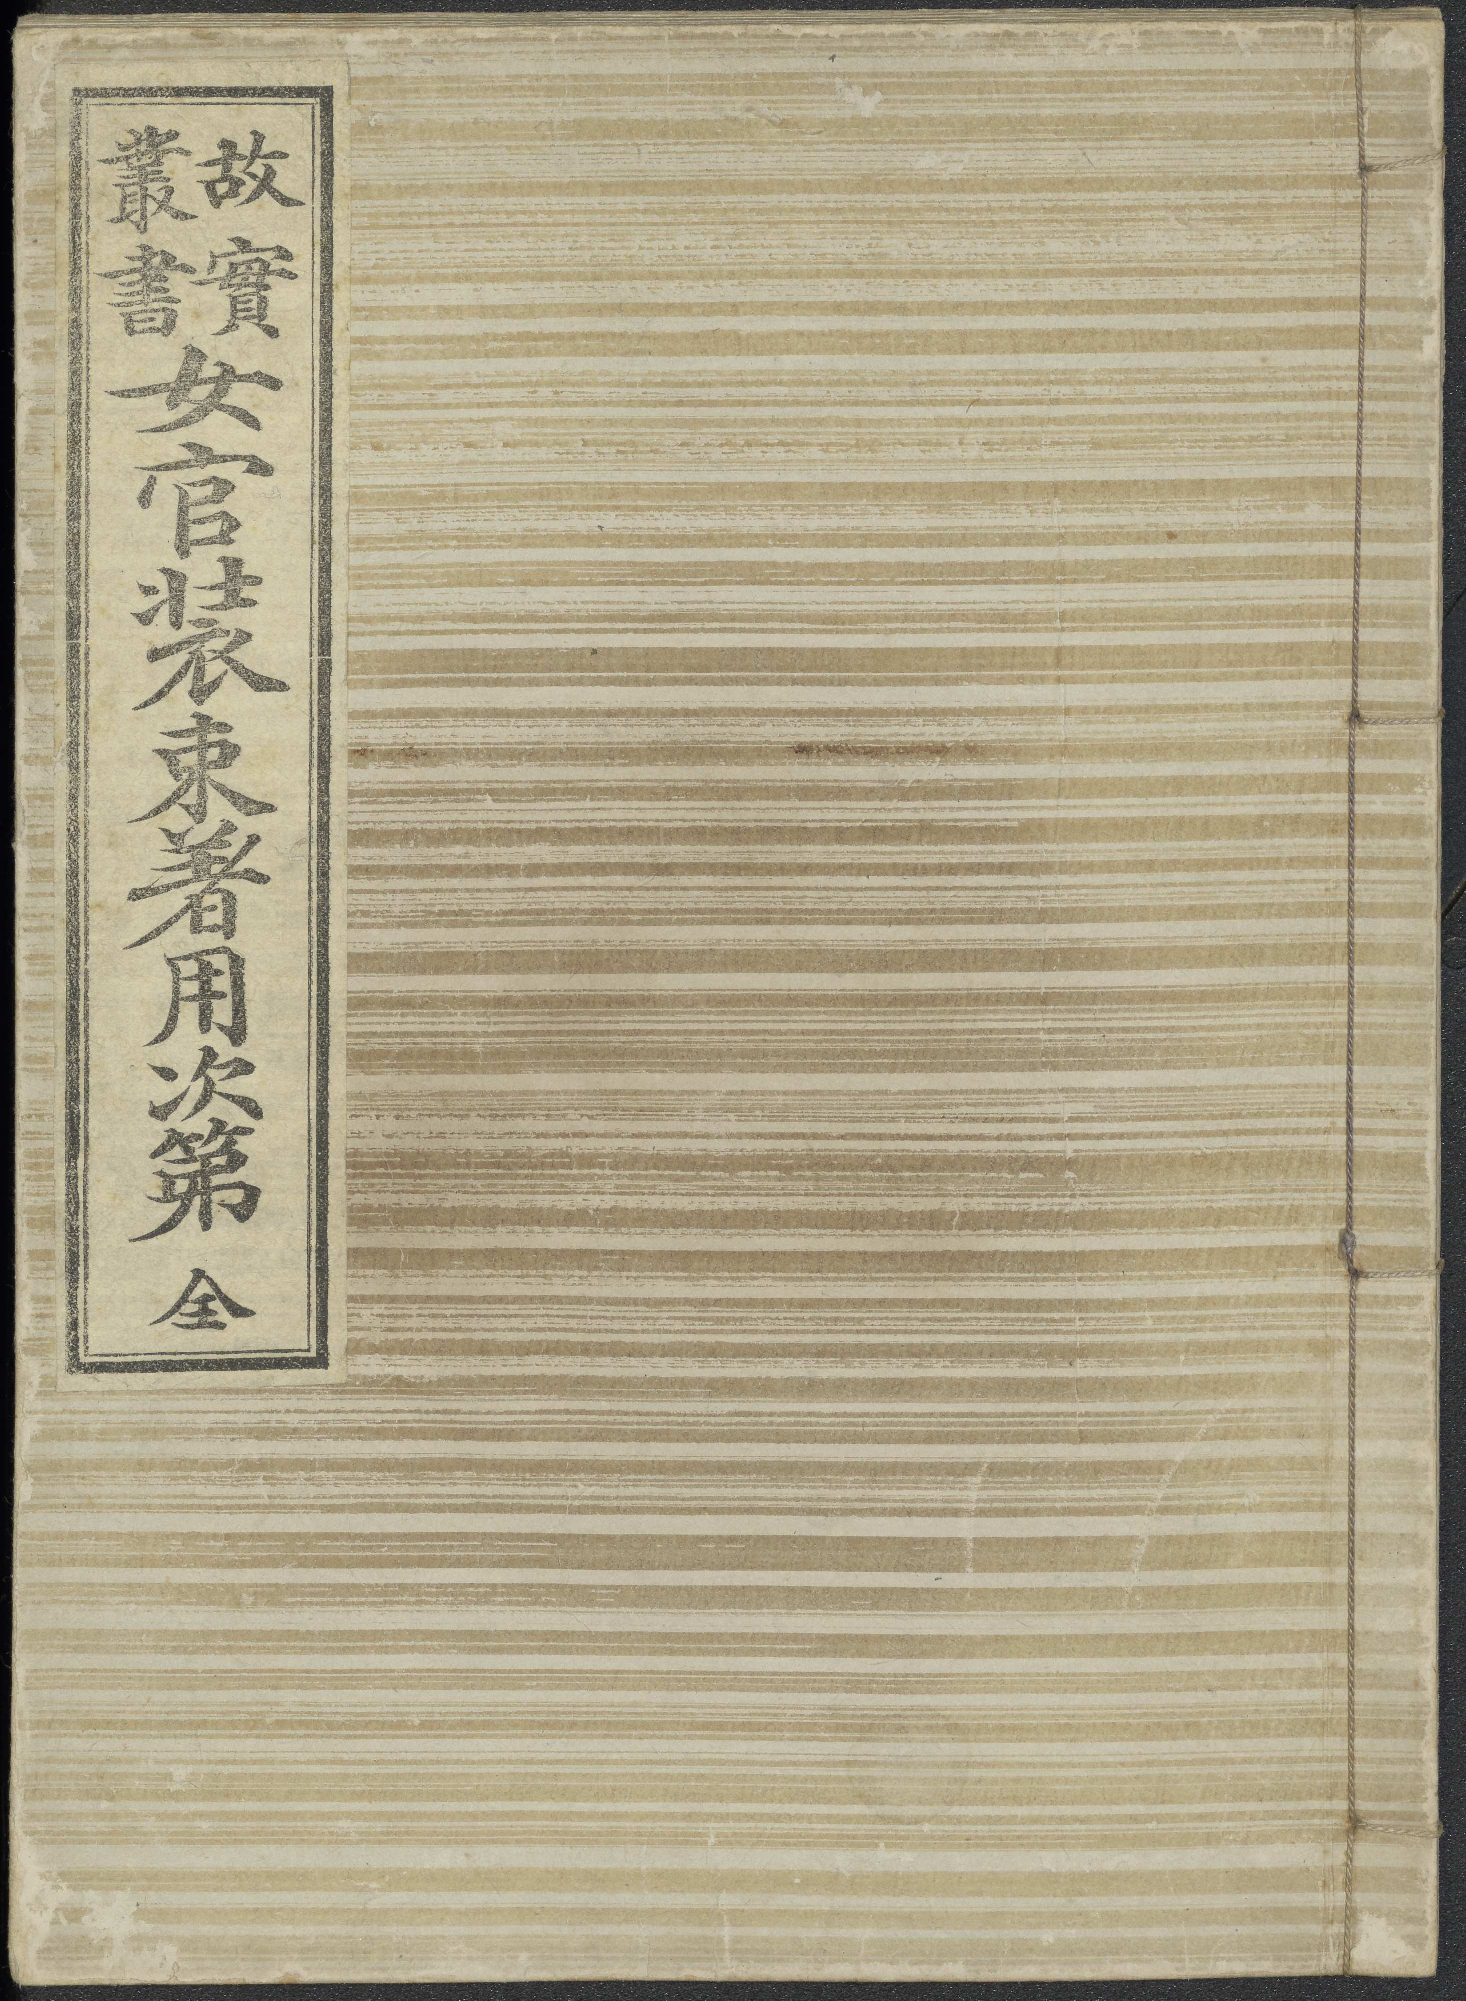 故實
叢書
女官装束著用次第 全